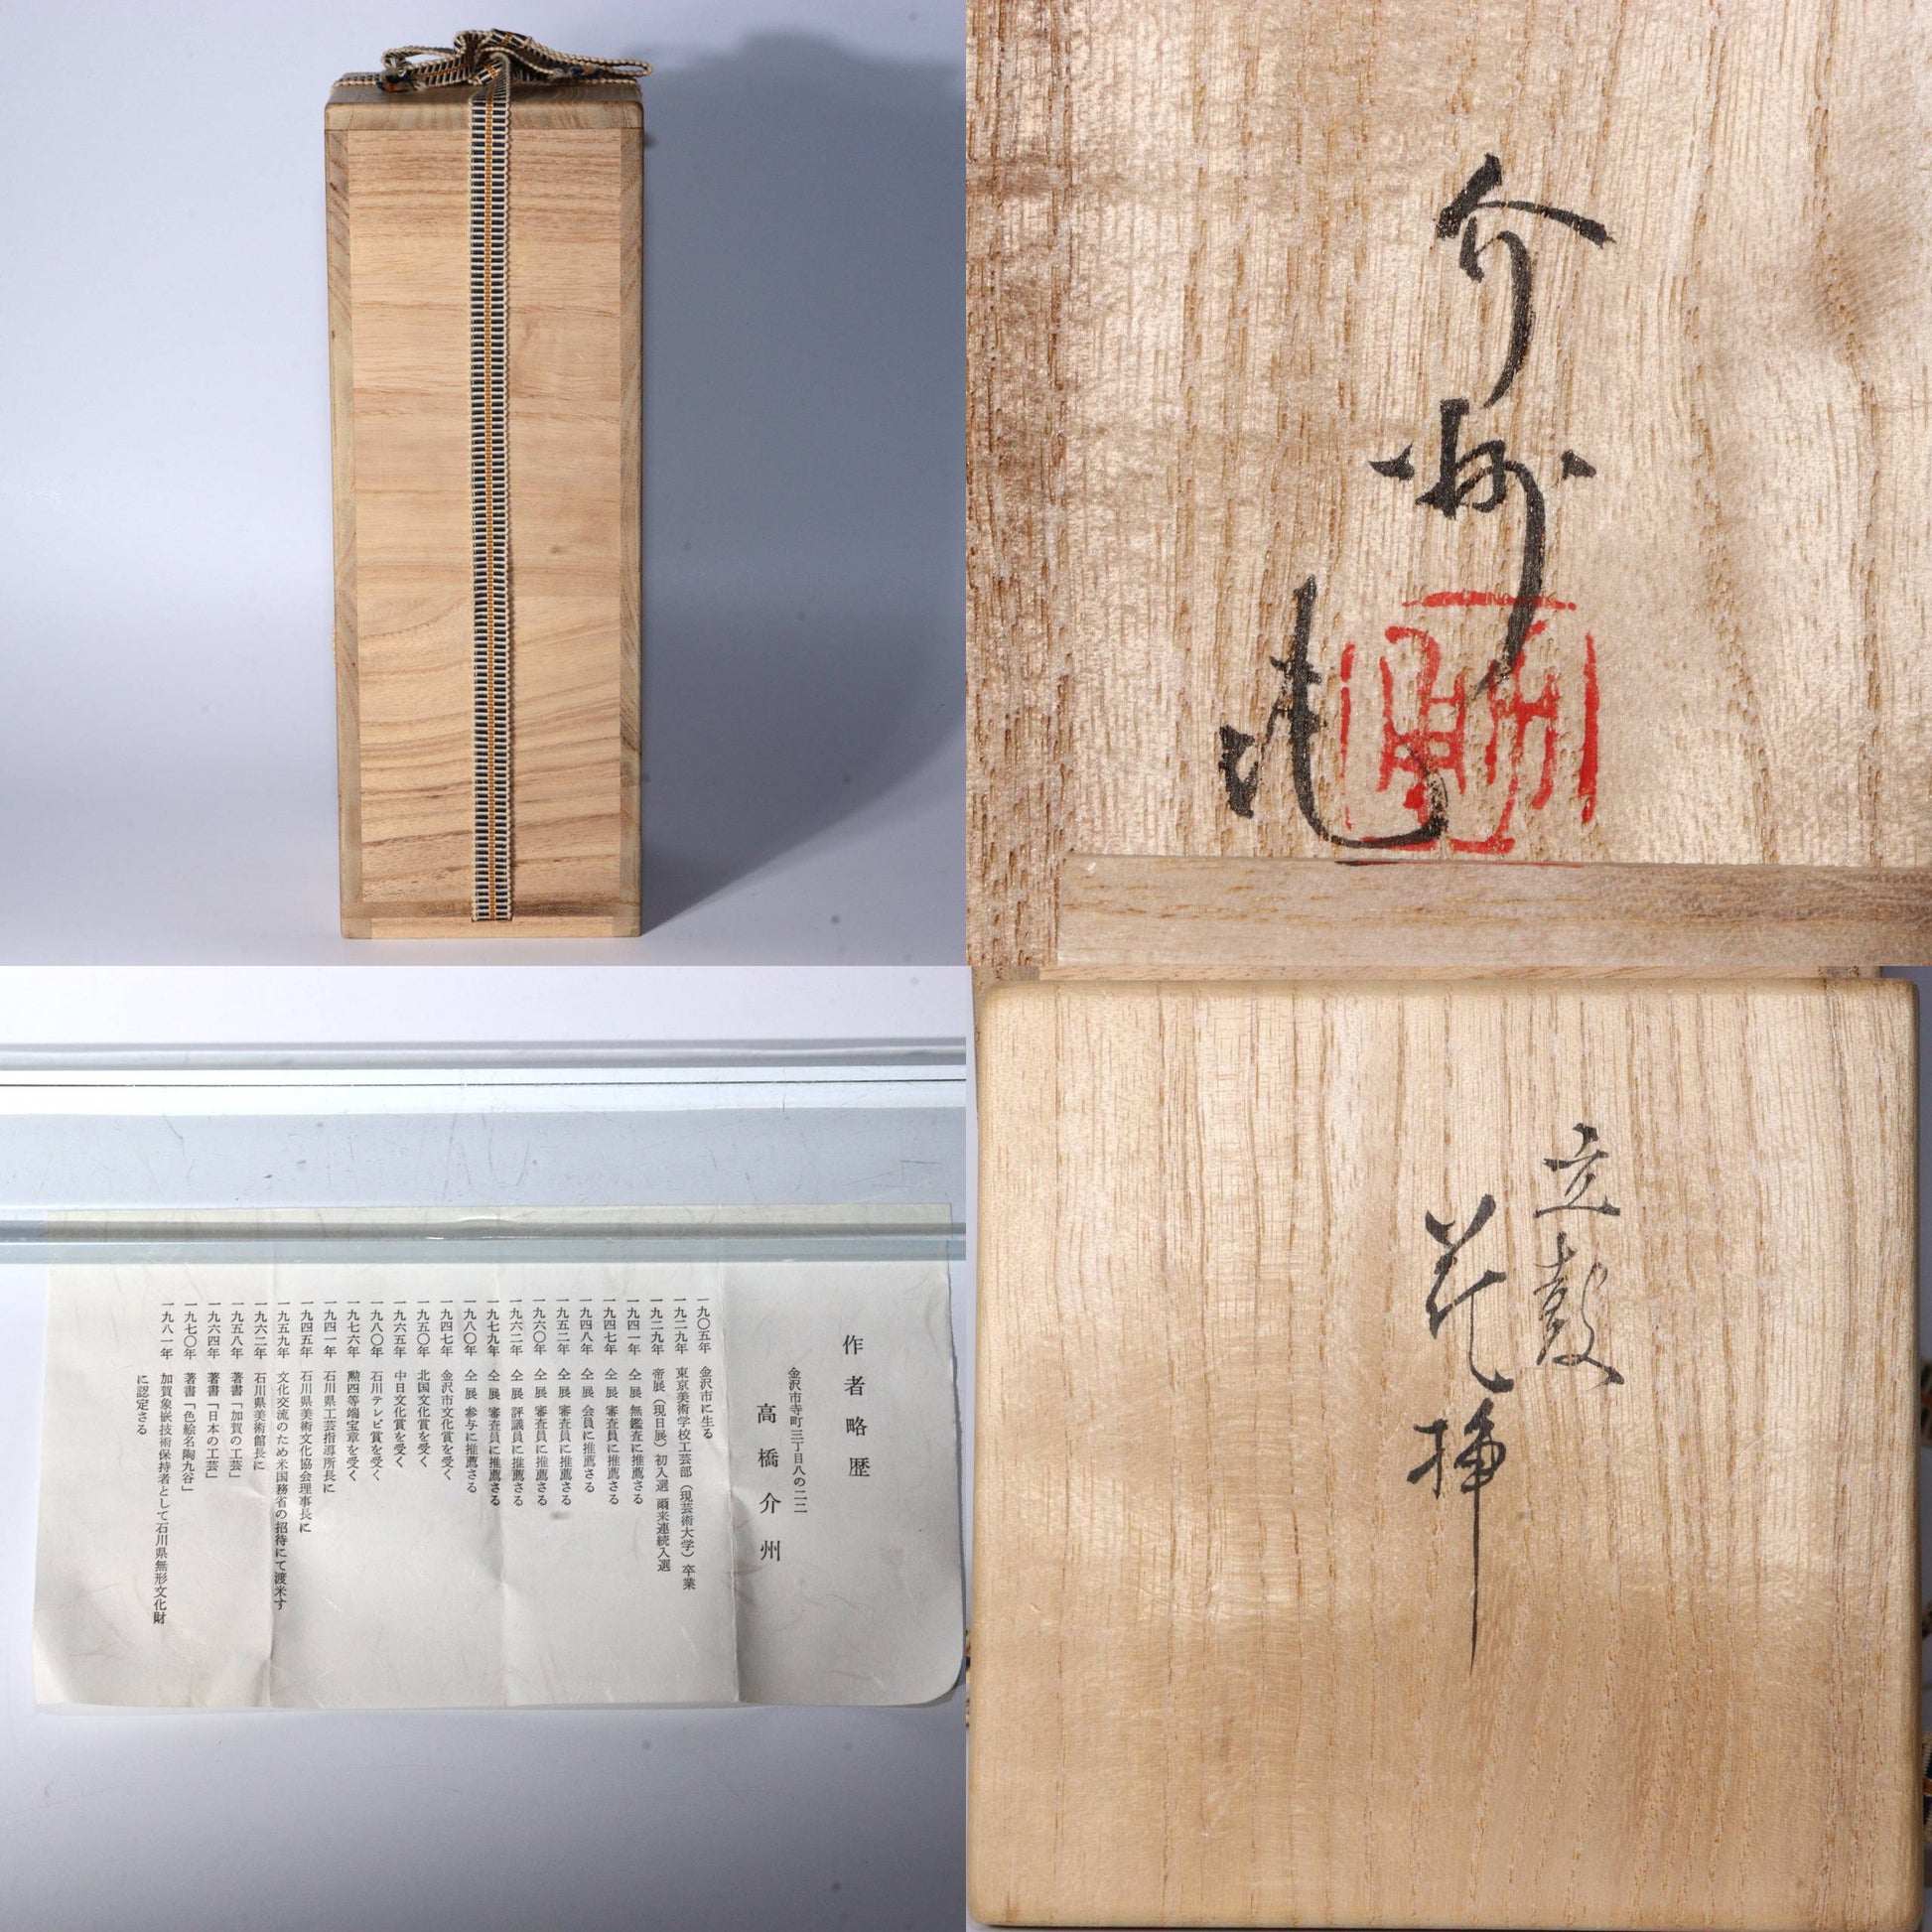 介州
造
作者略歴
金沢市寺町三丁目八の二二
高橋介州
一九〇五年 金沢市に生る
一九二九年 東京美術学校工芸部（現芸術大学）卒業
一九二九年 帝展（現日展）初入選 爾来連続入選
一九四一年 仝展 無鑑査に推薦さる
一九四七年 仝展 審査員に推薦さる
一九四八年 仝展 会員に推薦さる
一九五二年 仝展 審査員に推薦さる
一九六〇年 仝展 審査員に推薦さる
一九六二年 仝展 評議員に推薦さる
一九七九年 仝展 審査員に推薦さる
一九八〇年 仝展 参与に推薦さる
一九四七年 金沢市文化賞を受く
一九五〇年 北国文化賞を受く
一九六五年 中日文化賞を受く
一九八〇年 石川テレビ賞を受く
一九七六年 勲四等瑞宝章を受く
一九四一年 石川県工芸指導所長に
一九四五年 石川県美術文化協会理事長に
一九五九年 文化交流のため米国務省の招待にて渡米す
一九六二年 石川県美術館長に
一九五八年 著書「加賀の工芸」
一九六四年 著書「日本の工芸」
一九七〇年 著書「色絵名陶九谷」
一九八一年 加賀象嵌技術保持者として石川県無形文化財
に認定さる
立鼓
花挿